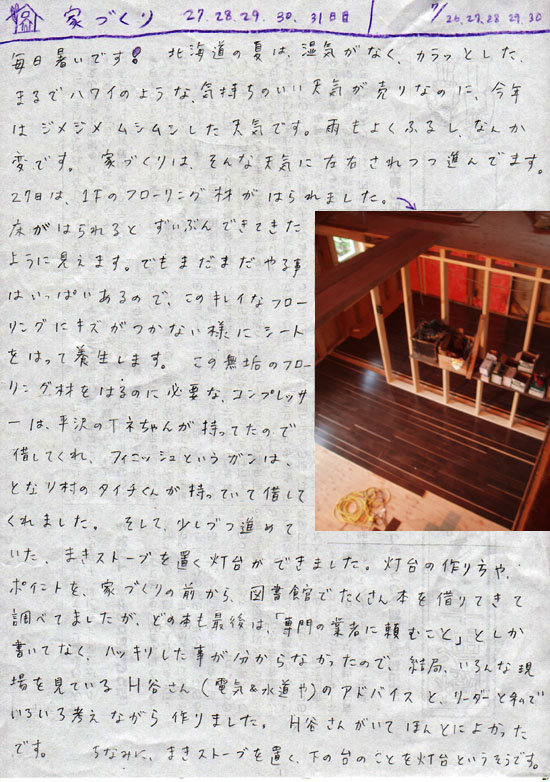 家づくり 27.28.29.30.31日目 7/26.27.28 29.30
毎日暑いです! 北海道の夏は、湿気がなく、カラッとした、
まるでハワイのような、気持ちのいい天気が売りなのに、今年
はジメジメムシムシした天気です。雨もよくふるし、なんか
変です。 家づくりは、そんな天気に左右されつつ進んでます。
27日は、1Fのフローリング材がはられました。
床がはられると ずいぶんできてきた
ように見えます。でもまだまだやる事
はいっぱいあるので、このキレイなフロー
リングにキズがつかない様にシート
をはって養生します。 この無垢のフロー
リング材をはるのに必要な、コンプレッサ
ーは、平沢のTネちゃんが持ってたので
借してくれ、フィニッシュというガンは、
となり村のタイチくんが持っていて借して
くれました。 そして、少しづつ進めて
いた、まきストーブを置く灯台ができました。灯台の作り方や、
ポイントを、家づくりの前から、図書館でたくさん本を借りてきて
調べてましたが、どの本も最後は、「専門の業者に頼むこと」としか
書いてなく、ハッキリした事が分からなかったので、 結局、いろんな現
場を見ている H谷さん(電気&水道や)のアドバイスと、リーダーと
いろいろ考えながら作りました。 H谷さんがいてほんとによかった
です。 ちなみに、まきストーブを置く、下の台のことを灯台というそうです。